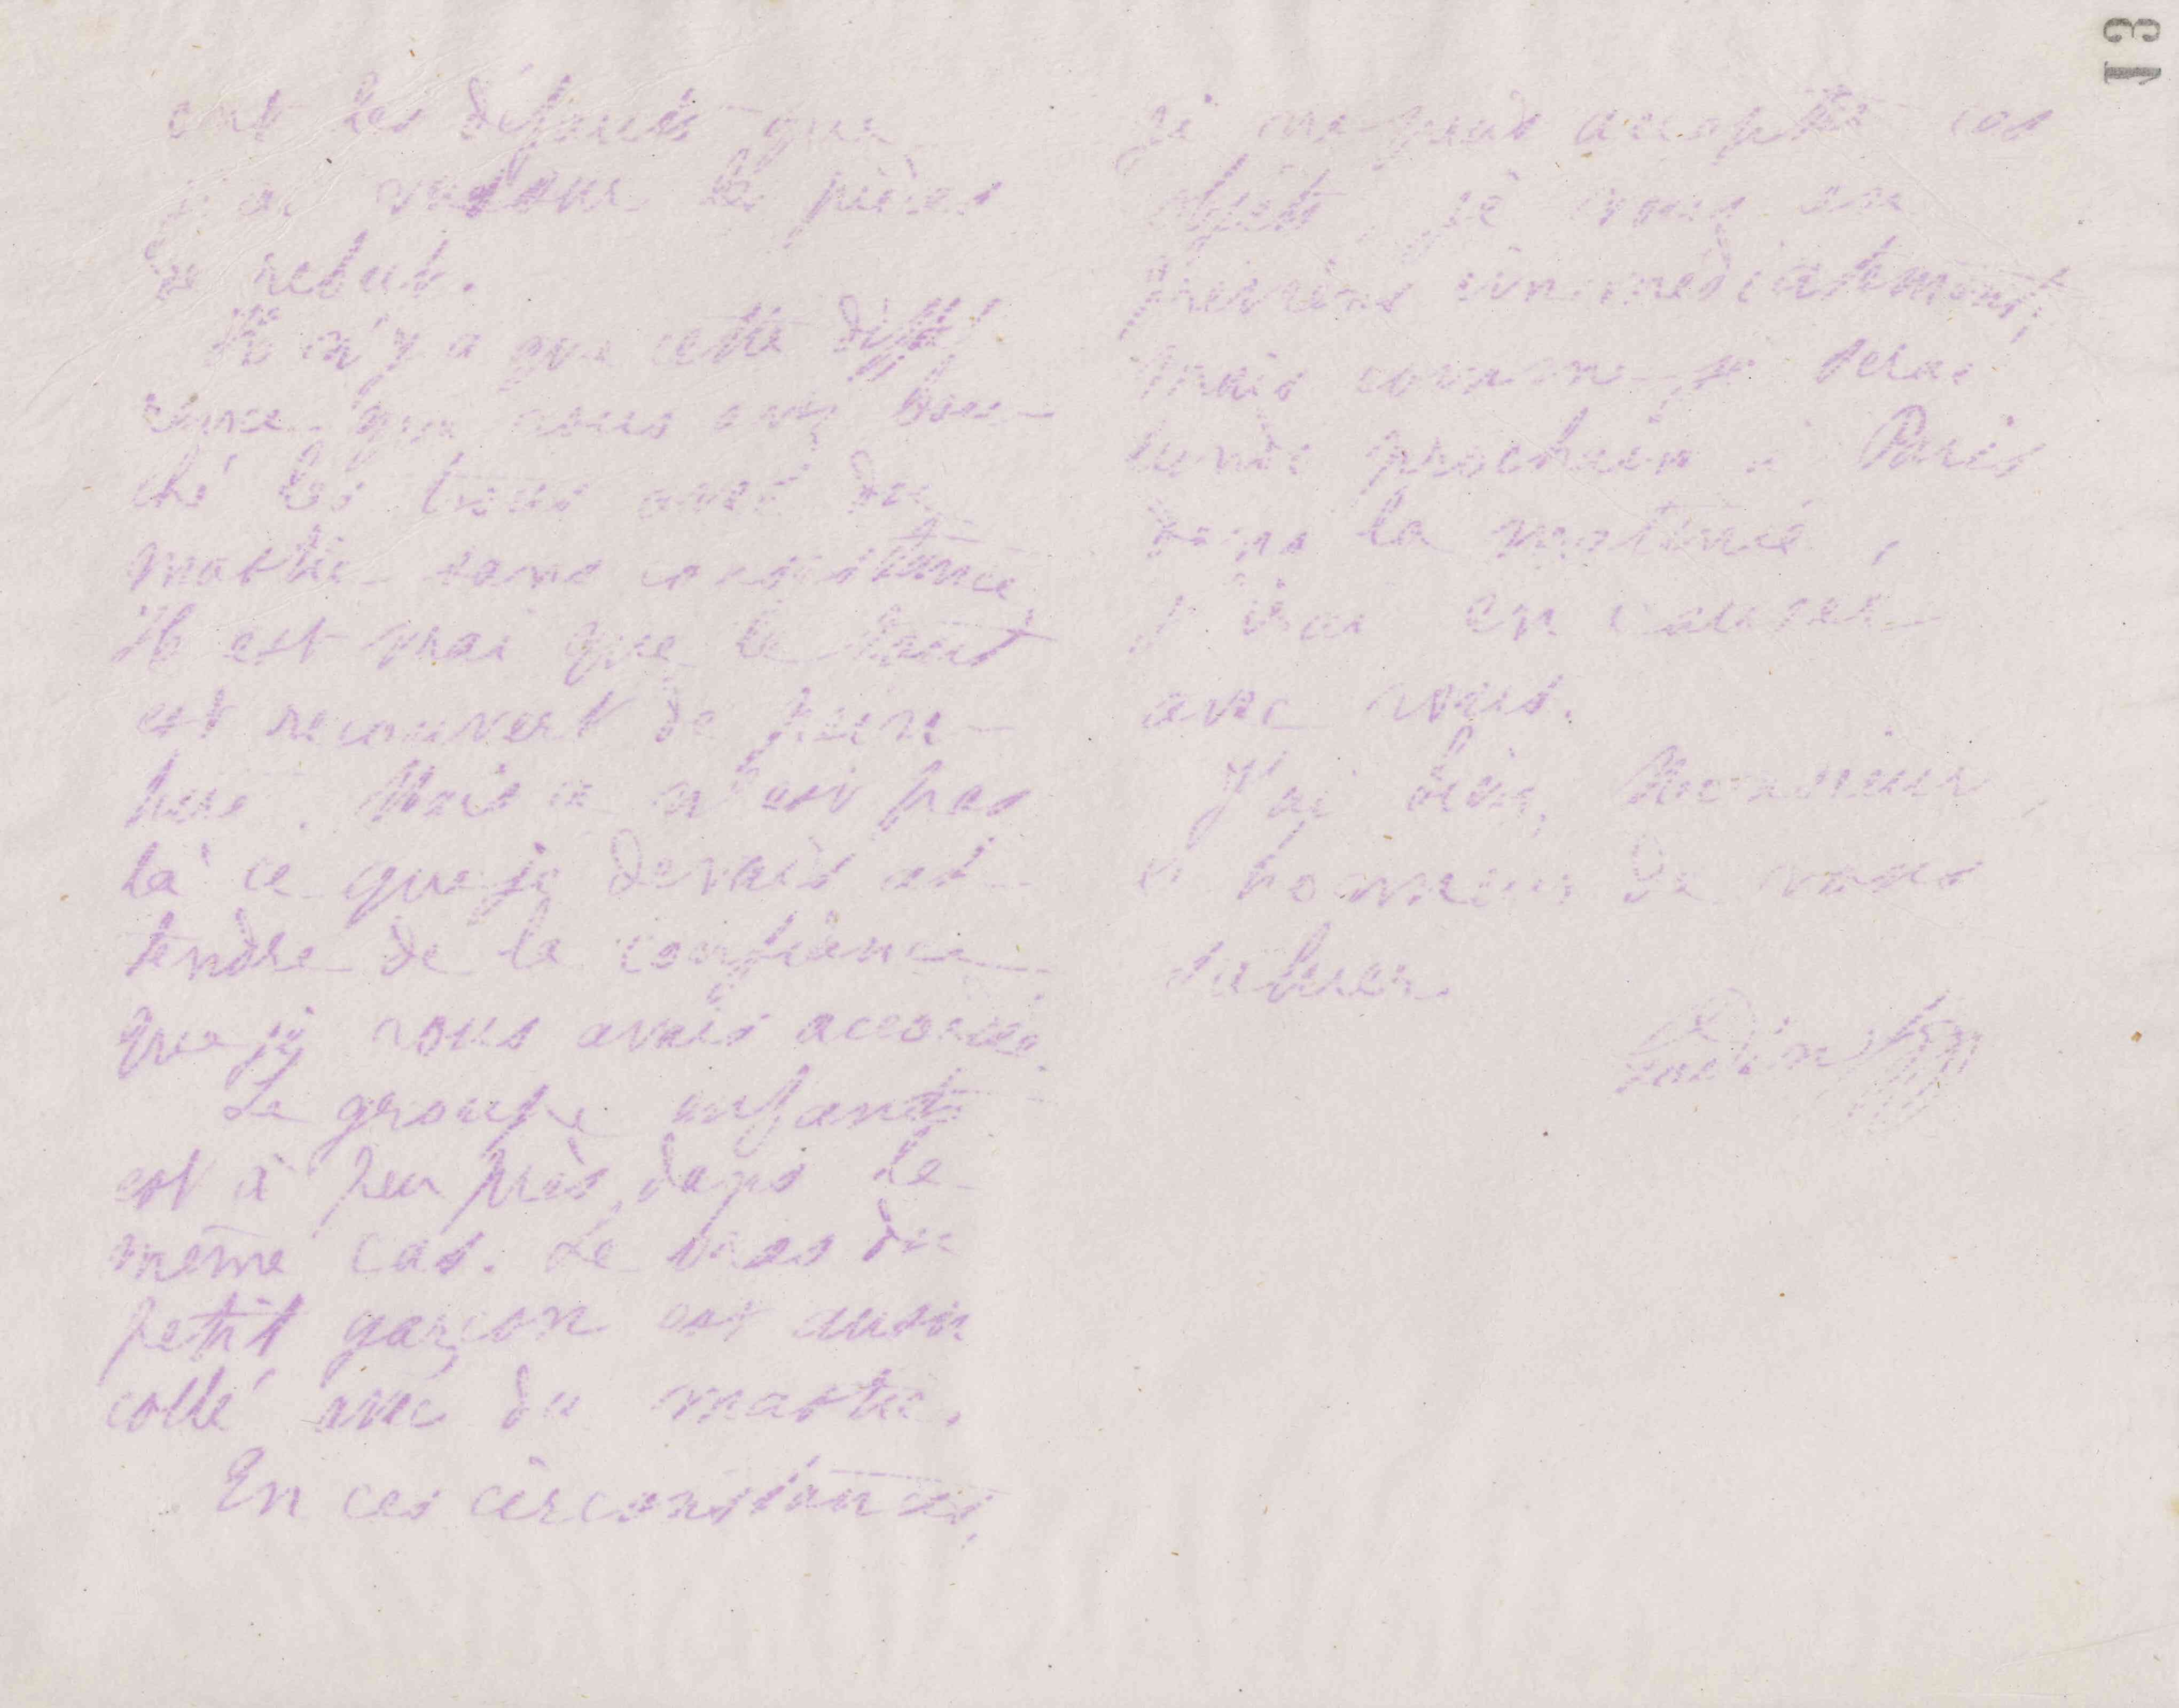 13
ont les défauts que
j'ai retourné les pièces
de rebut.
Il n'y a que cette diffé
rence que vous avez bou-
ché les trous avec du
mastic sans consistance
Il est vrai que le tout
est recouvert de pein-
ture. Mais ce n'est pas
là ce que je devais at-
tendre de la confiance
que je vous avais accordée.
Le groupe enfants
est à peu près dans le
même cas. Le bras du
petit garçon est aussi
collé avec du mastic.
En ces circonstances,
je ne peux accepter ces
objets, je vous en
préviens immédiatement,
mais comme je serai
lundi prochain à Paris
dans la matinée,
j'irai en causer
avec vous.
J'ai bien, Monsieur,
l'honneur de vous
saluer.
Godin